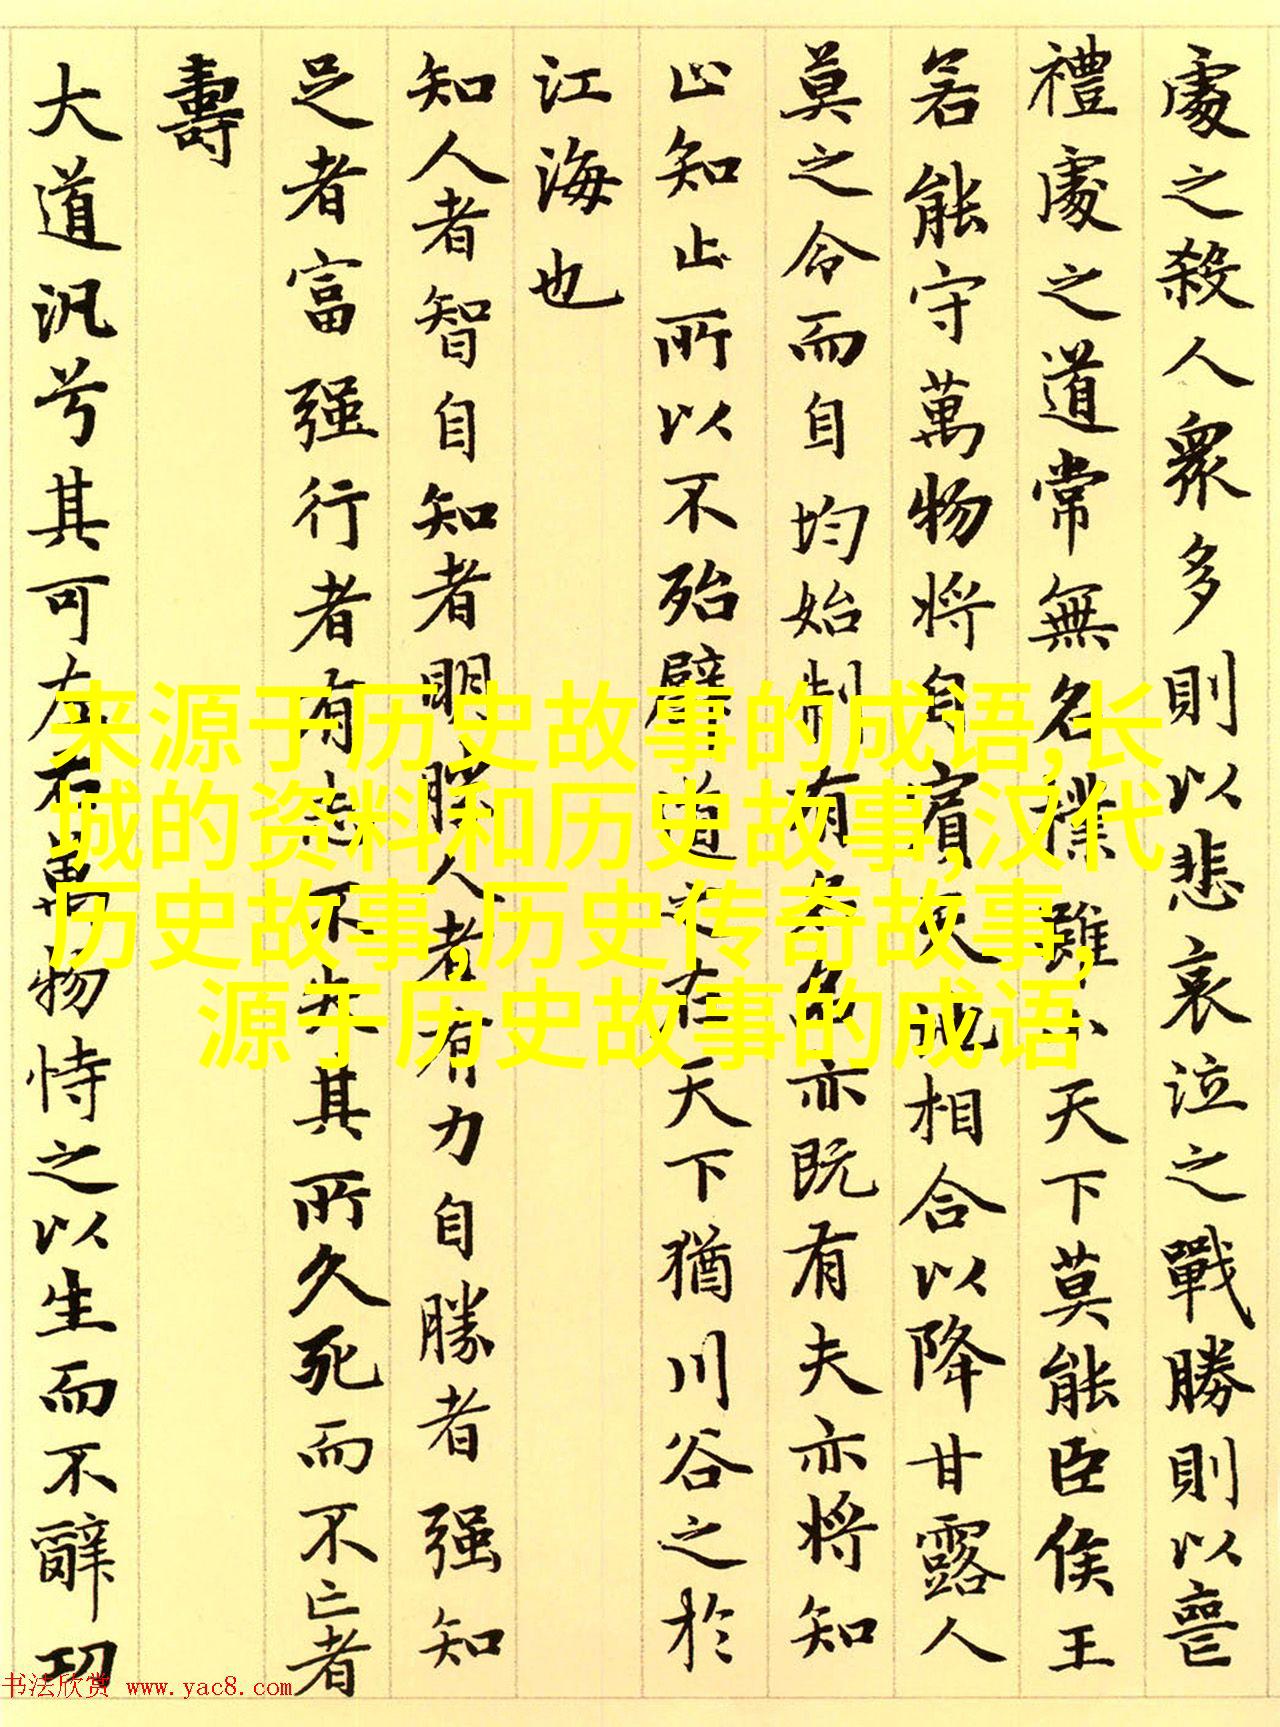 處之殺人衆多則以悲哀泣之戰勝則以喪
禮處之道常無名樸雖小天下莫能臣侯王
若能守萬物將自賓天地相合以降甘露人
莫之令而自均始制有名名亦既有夫亦將知
止知止所以不殆譬道之在天下猶川谷之於
江海也
知人者智自知者明勝人者有力自勝者强知
足者富强行者有志不失其所久死而不亡者
壽
大道汎兮其可左右萬物恃之以生而不辭功
来源于历史故事的成语,长
城的资料和历史故事,汉代
历史故事,历史传奇故事,
源于历史故事的成语
书法欣赏 www.yac8.com